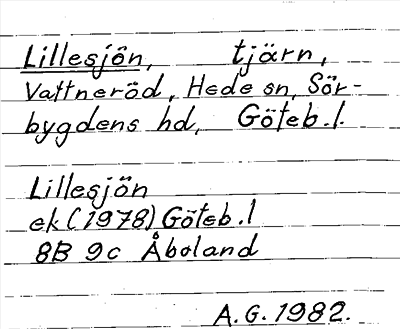 Lillesjön, tjärn,
Vattneröd, Hede sn, Sör-
bygdens hd, Göteb.l.
Lillesjön
ek (1978) Göteb.l
8B 9c Åboland
A.G. 1982.